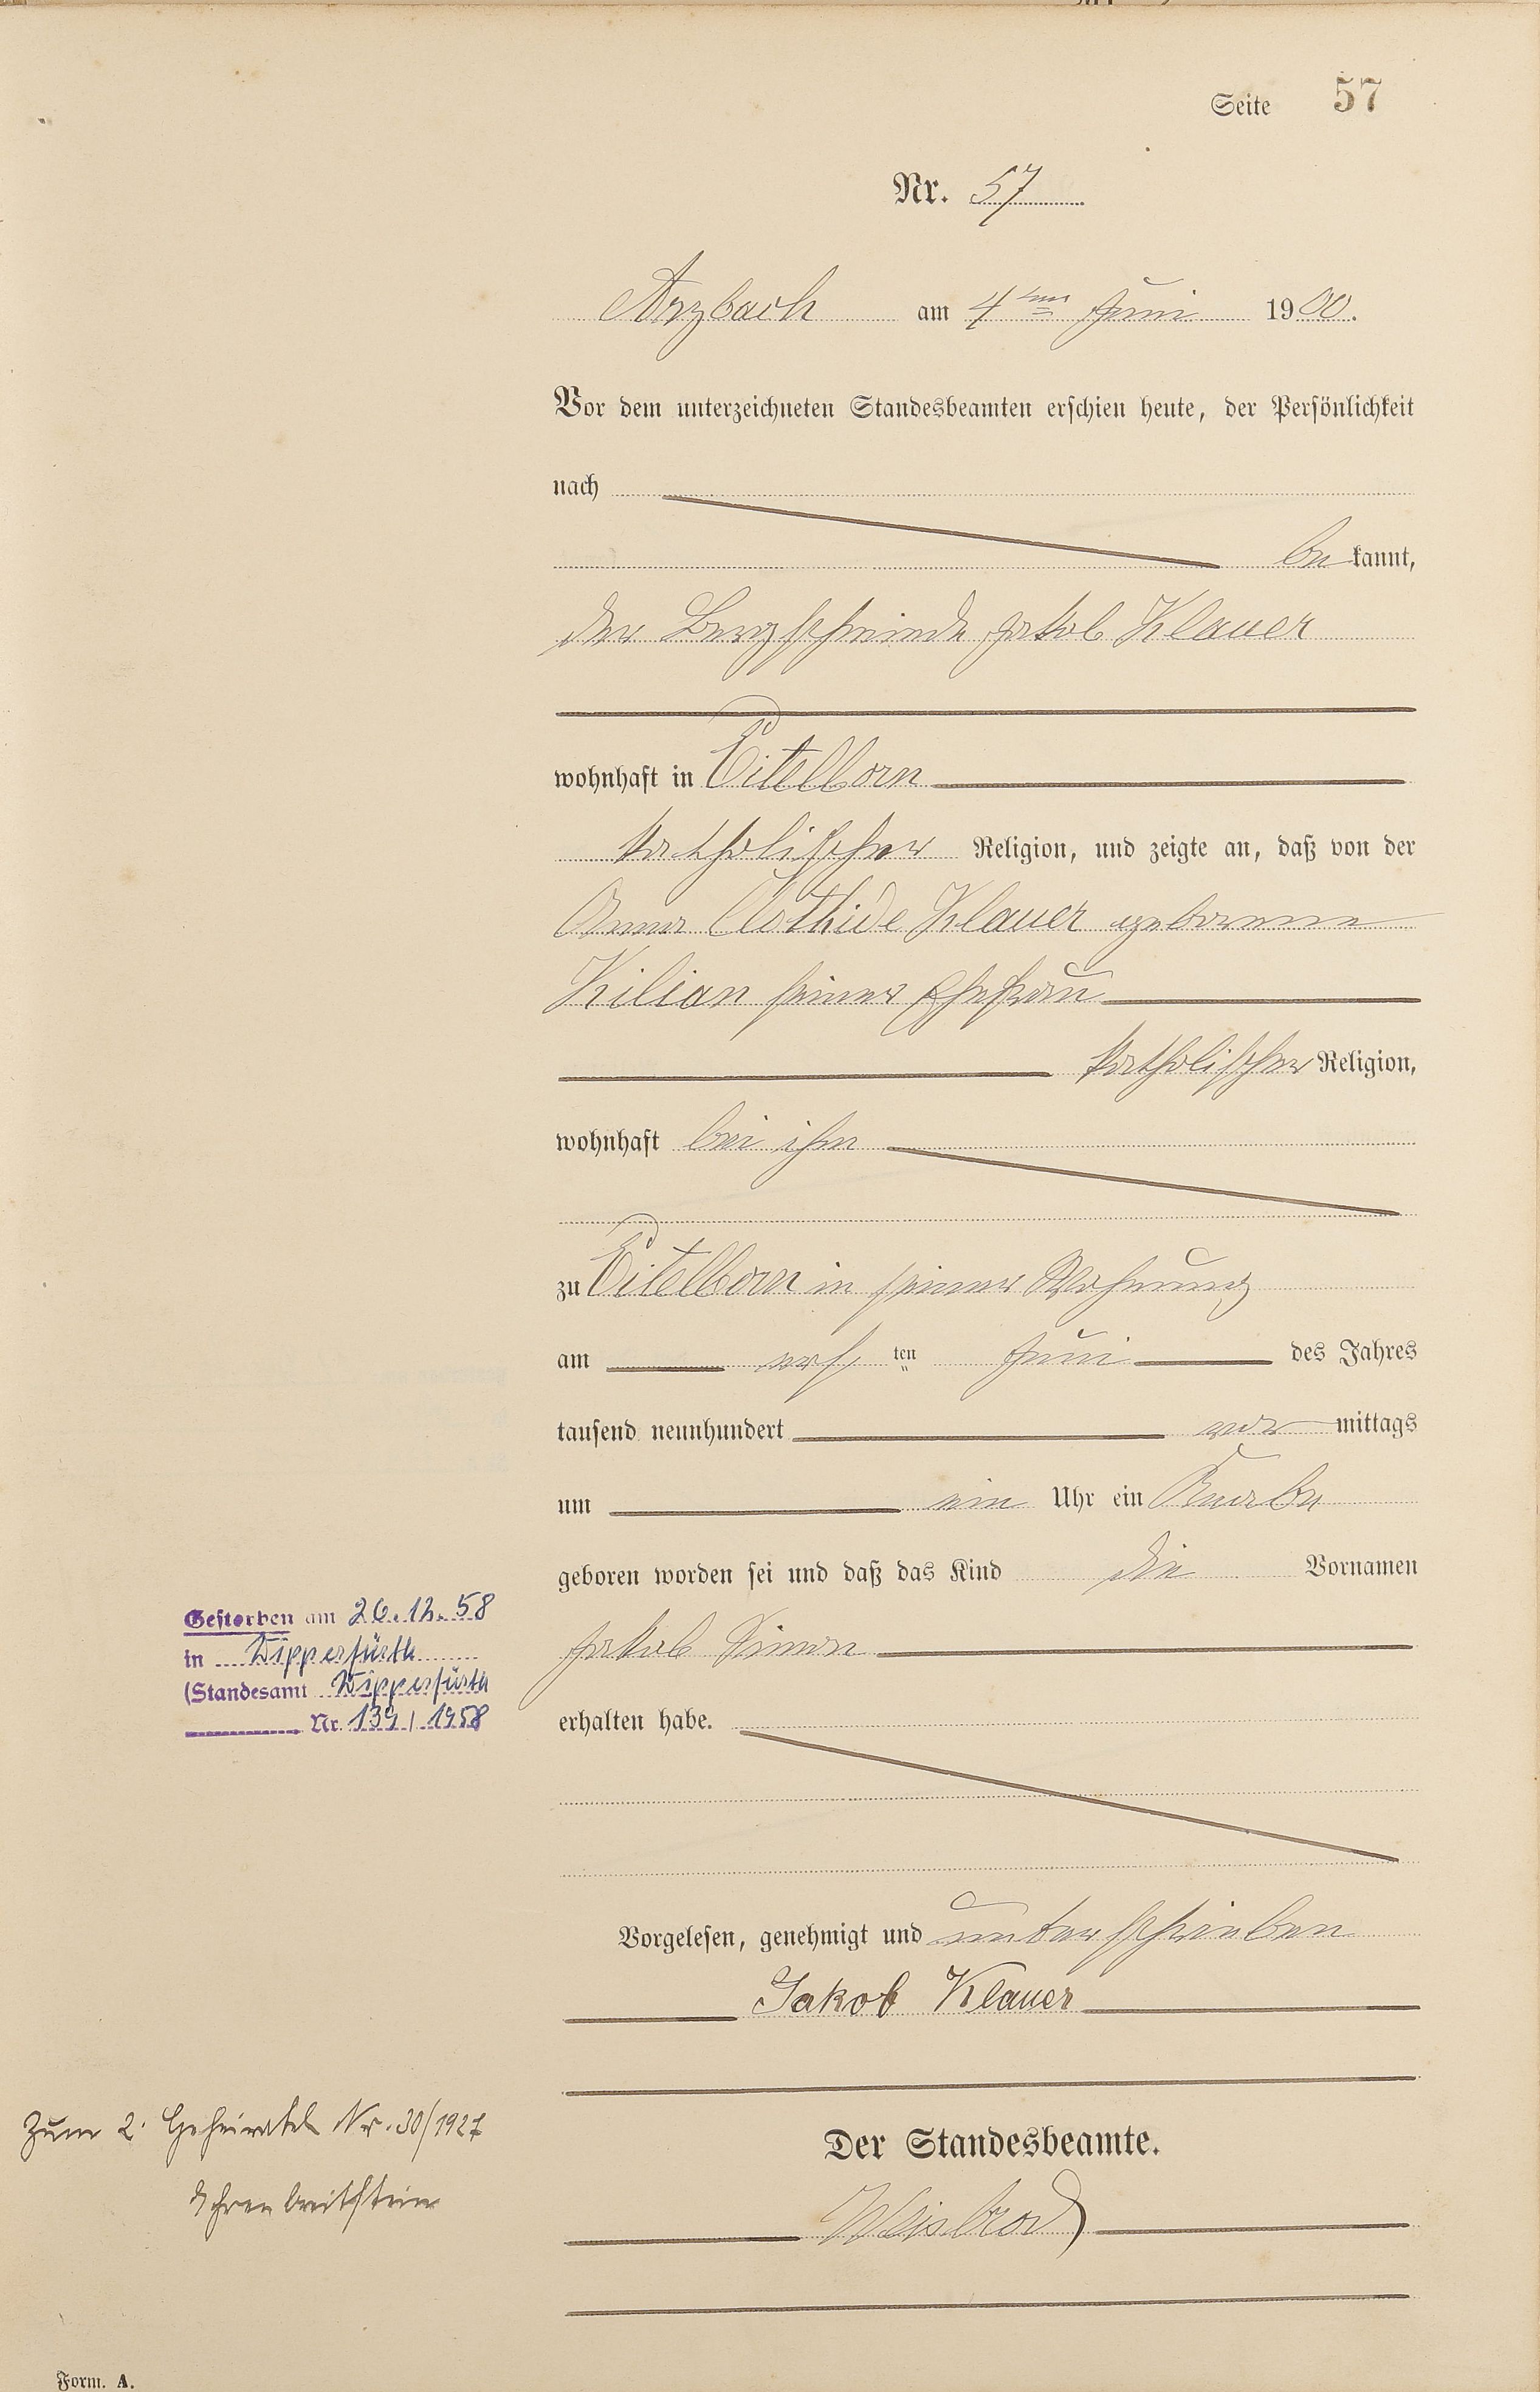 Seite 57
Nr. 57
Arzbach am 4ten Juni 1900.
Vor dem unterzeichneten Standesbeamten erschien heute, der Persönlichkeit
nach
be kannt,
der Bergschmiede Jakob Klauer
wohnhaft in Eitelborn
katholischer Religion, und zeigte an, daß von der
Anna Clothide Klauer geborenne
Kilian seiner Ehefrau
katholischer Religion,
wohnhaft bei ihm
zu Eitelborn in seiner Wohnung
am ersten Juni des Jahres
tausend neunhundert vor mittags
um ein Uhr ein Knabe
geboren worden sei und daß das Kind die Vornamen
Jakob Simon
erhalten habe.
Gestorben am 26.12.58
in Wipperfürth
(Standesamt Wipperfürth
Nr. 139 / 1958
Vorgelesen, genehmigt und unterschrieben
Jakob Klauer
Der Standesbeamte.
Weisbrod
Zum 2. Geheiratet Nr. 30/1927
Ehrenbreitstein
Form. A.